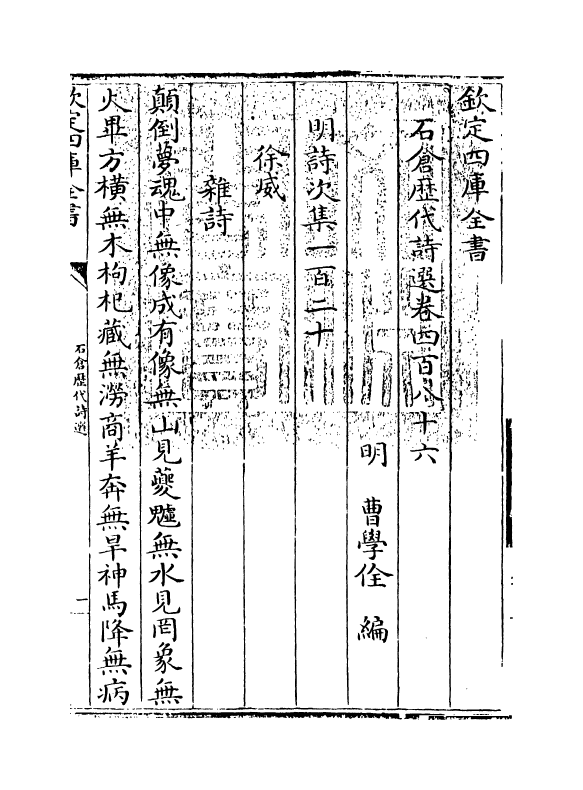 欽定四庫全書
石倉歷代詩選卷四百八十六
明 曹學佺 編
明詩次集一百二十
徐威
雜詩
顛倒夢魂中無像成有像無山見夔魖無水見罔象無
火畢方橫無木枸杞藏無澇商羊奔無旱神馬降無病
欽定四庫全書
石倉歷代詩選
一